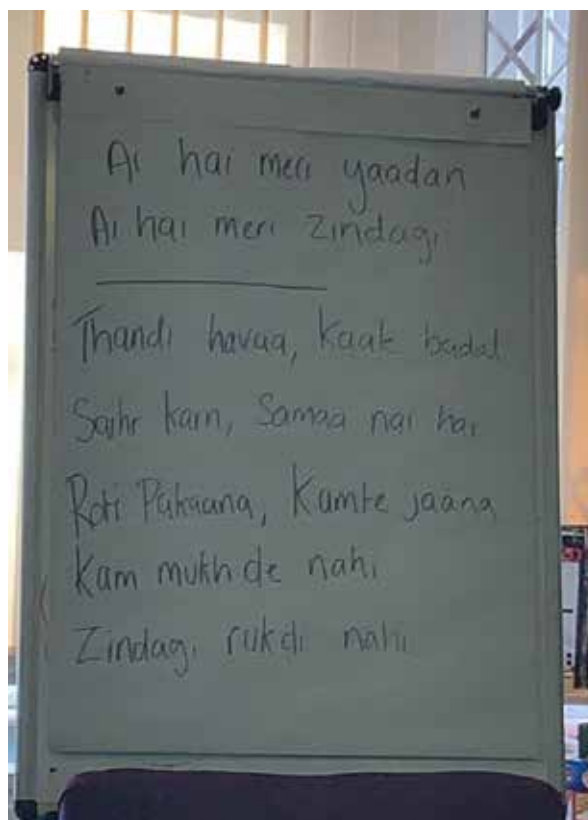 Ai hai meri yaadan
Ai hai meri zindagi
Thandi havaa, Kaale badal
Saihr karn, Samaa nai hai
Roti Pakaana, Kamte jaana
Kam mukhde nahi
Zindagi rukdi nahi